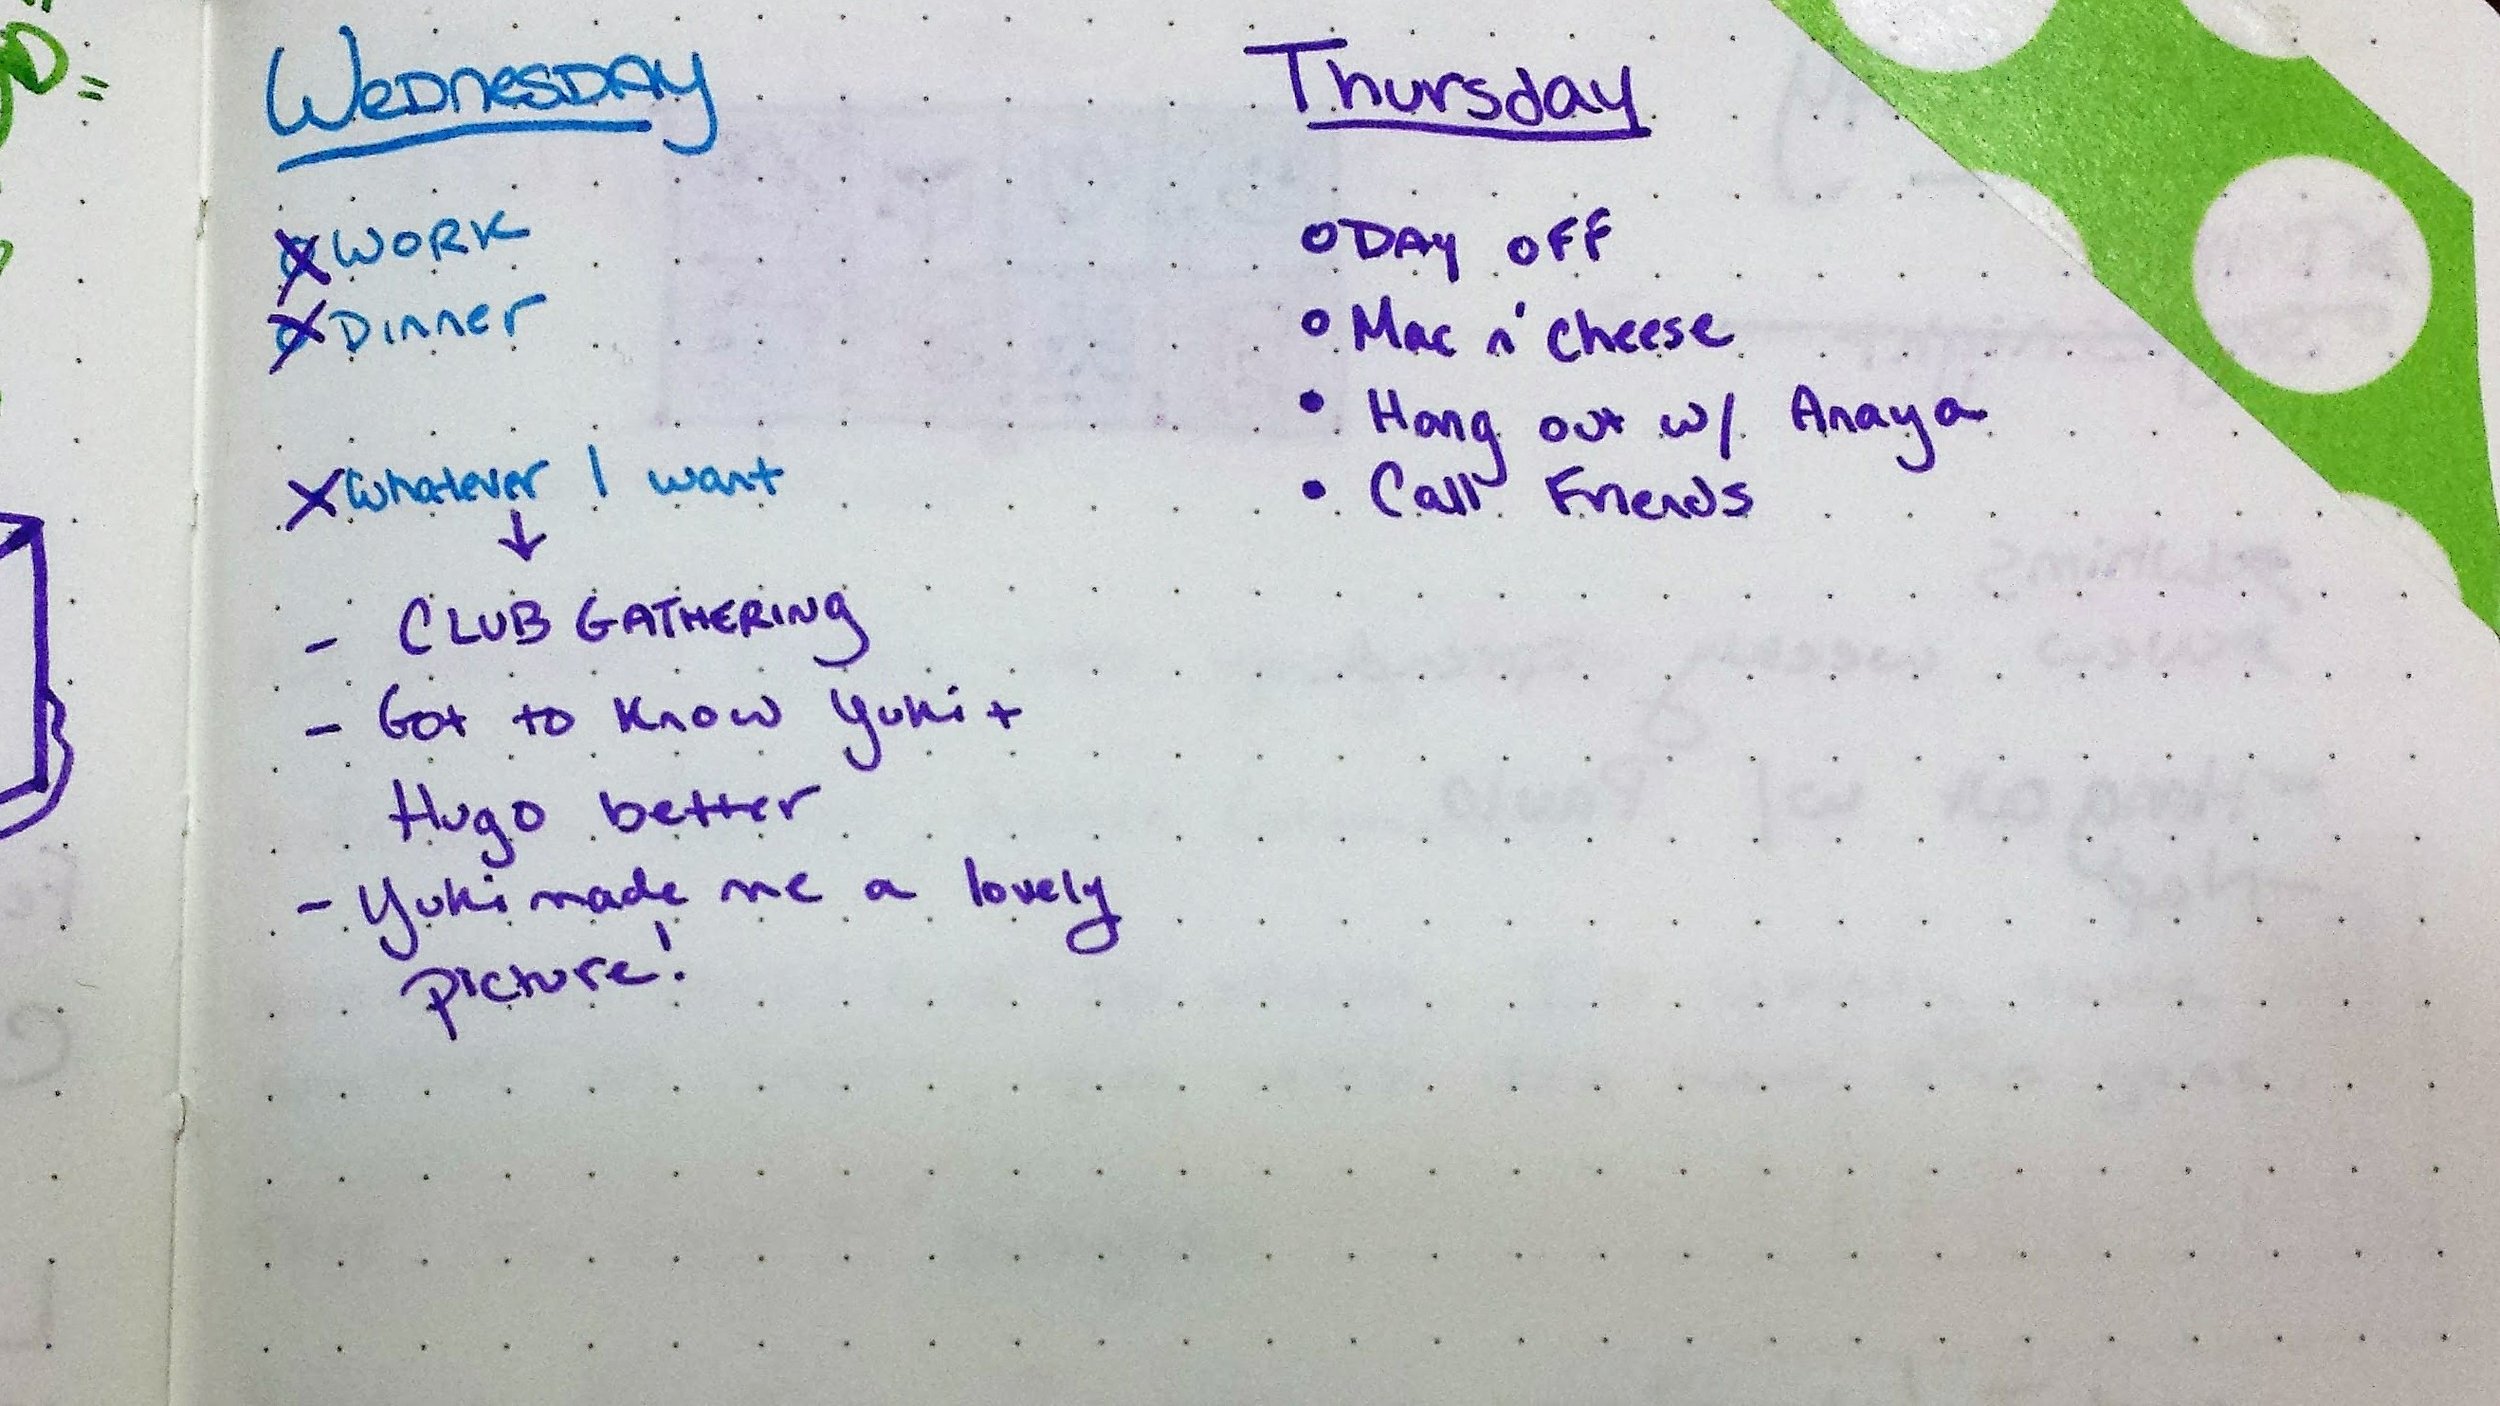 Wednesday
x Work
x Dinner
x Whatever I want
↓
- Club Gathering
- Got to know Yuki +
Hugo better
- Yuki made me a lovely
picture!
Thursday
o Day off
o Mac n' cheese
• Hang out w/ Anaya
• Call Friends